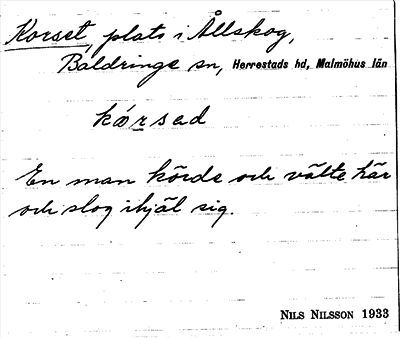 Korset, plats i Ållskog,
Baldringe sn, Herrestads hd, Malmöhus län
kórsed
En man körde och välte här
och slog ihjäl sig.
NILS NILSSON 1933